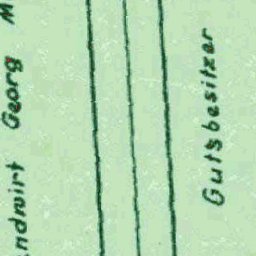 ndwirt Georg M
Gutsbesitzer